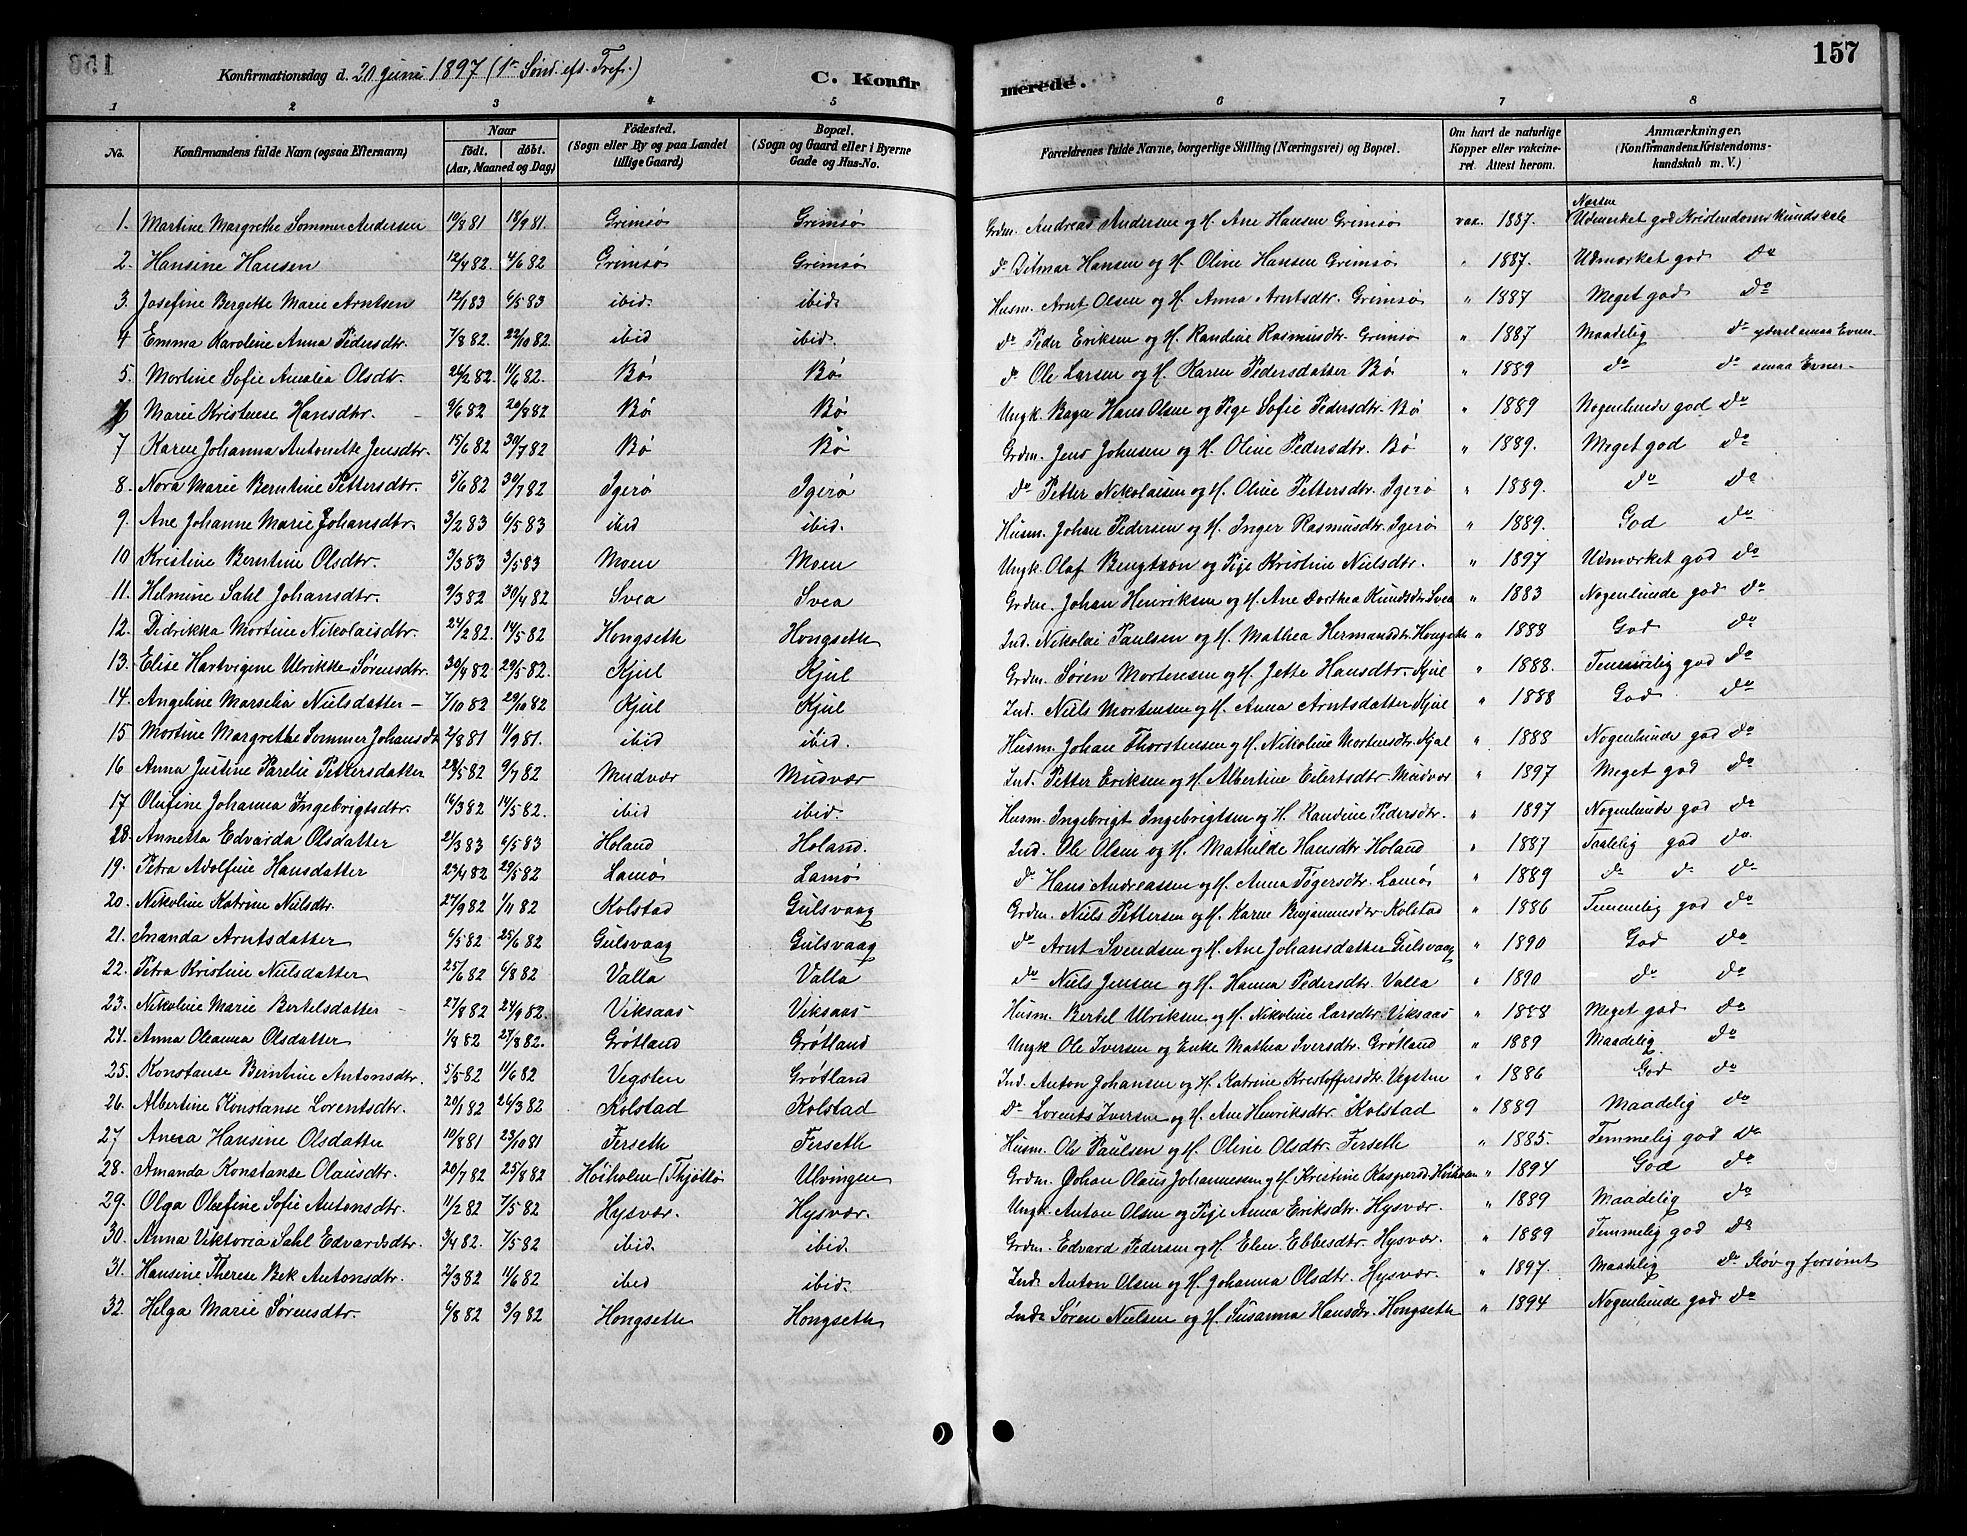 Konfirmationsdag d. 20 Juni 1897 (1ste Sønd. eft. Tref.) C. Konfirmerede. 157
1 2 3 4 5 6 7 8
No. Konfirmandens fulde Navn (ogsaa Efternavn) Naar født. døbt. (Aar, Maaned og Dag) Fødested. (Sogn eller By og paa Landet tillige Gaard) Bopæl. (Sogn og Gaard eller i Byerne Gade og Hus-No. Forældrenes fulde Navne, borgerlige Stilling (Næringsvei) og Bopæl. Om havt de naturlige Kopper eller vakcineret. Attest herom. Anmærkninger. (Konfirmandens Kristendomskundskab m. V.)
1. Martine Margrethe Sommer Andersen 10/8 81 18/9 81. Grimsø Grimsø Grdm. Andreas Andersen og H. Ane Hansen Grimsø vax. 1887. Næsten Udmærket god Kristendomskundskab
2. Hansine Hansen 12/4 82. 4/6 82 Grimsø Grimsø do Ditmar Hansen og H. Oline Hansen Grimsø " 1887. Udmærket god do
3. Josefine Bergette Marie Arntsen 12/1 83 6/5 83 ibid. ibid. Husm. Arnt Olsen og H. Anna Arntsdtr. Grimsø " 1887 Meget god do
4 Emma Karoline Anna Pedersdtr. 7/8 82. 22/10 82. ibid ibid. do Peder Eriksen og H. Randine Rasmusdtr. Grimsø " 1887 Maadelig do yderst smaa Evner
5. Mortine Sofie Amalia Olsdtr. 26/2 82. 11/6 82. Bø Bø do Ole Larsen og H. Karen Pedersdatter Bø " 1889 do do smaa Evner
6 Marie Kristense Hansdtr. 9/6 82 20/8 82 Bø Bø Ungk. Hans Olsen og Pige Sofie Pedersdtr. Bø " 1889 Nogenlunde god do
7 Karen Johanna Antonette Jensdtr. 15/6 82 30/7 82 Bø Bø Grdm. Jens Johnsen og H. Oline Pedersdtr. Bø " 1889. Meget god do
8. Nora Marie Berntine Pettersdtr. 5/6 82 30/7 82 Igerø Igerø do Petter Nikolaisen og H. Oline Pettersdtr. Igerø " 1889. do do
9. Ane Johanne Marie Johansdtr. 3/2 83 6/5 83 ibid ibid. Husm. Johan Pedersen og H. Inger Rasmusdtr. Igerø " 1889. God do
10 Kristine Berntine Olsdtr. 3/3 83 3/5 83 Moen Moen Ungk. Olaf Bengtson og Pige Kristine Nielsdtr. " 1897 Udmærket god do
11. Helmine Sahl Johansdtr. 9/3 82 30/4 82 Svea Svea Grdm. Johan Henriksen og H. Ane Dorthea Knudsdtr Svea " 1883 Nogenlunde god do
12. Didrikka Mortine Nikolaisdtr. 24/2 82. 14/5 82 Hongseth Hongseth Ind. Nikolai Paulsen og H. Mathea Hermansdtr Hongseth " 1888 God do
13. Elise Hartvigine Ulrikke Sørensdtr. 30/4 82. 29/5 82. Kjul Kjul Grdm. Søren Mortensen og H. Jette Hansdtr. Kjul " 1888. Temmelig god do
14. Angeline Marselia Nielsdatter 7/10 82 29/10 82 Kjul Kjul Ind. Niels Mortensen og H. Anna Arntsdatter Kjul " 1888 God do
15 Mortine Margrethe Sommer Johansdtr 2/8 81 11/9 81. ibid ibid. Husm. Johan Thorstensen og H. Nikoline Mortensdtr. Kjul " 1888 Nogenlunde god do
16 Anna Justine Parelie Pettersdatter 28/5 82 9/7 82 Mudvær Mudvær Ind. Petter Eriksen og H. Albertine Eilertsdtr. Mudvær " 1897 Meget god do
17 Olufine Johanna Ingebrigtsdtr. 16/3 82 14/5 82. ibid ibid. Husm. Ingebrigt Ingebrigtsen og H. Randine Pedersdtr. " 1897 Nogenlunde god do
18. Annetta Edvarda Olsdatter 21/3 83 6/5 83 Holand Holand. Ind. Ole Olsen og H. Mathilde Hansdtr Holand " 1887 Taalelig god do
19. Petra Adolfine Hansdatter 23/4 82 29/5 82 Lamø Lamø do Hans Andreassen og H. Anna Tøgersdtr. Lamø " 1889 do do do
20. Nikoline Katrine Nielsdtr. 27/9 82 1/11 82 Kolstad Gulsvaag Grdm. Niels Pettersen og H. Karen Benjaminsdtr Kolstad " 1886 Temmelig god do
21. Inanda Arntsdatter 6/5 82 25/6 82 Gulsvaag Gulsvaag do Arnt Svendsen og H. Ane Johansdatter Gulsvaag " 1890 God do
22. Petra Kristine Nielsdatter 25/6 82 6/8 82 Valla Valla do Niels Jensen og H. Hanna Pedersdtr. Valla " 1890 do do
23. Nikoline Marie Bertelsdatter 27/8 82 24/9 82. Viksaas Viksaas Husm. Bertel Ulriksen og H. Nikoline Larsdtr. Viksaas " 1888 Meget god do
24. Anna Oleanna Olsdatter 1/8 82 27/8 82. Grøtland Grøtland Ungk Ole Iversen og Enke Mathea Iversdtr. Grøtland " 1889 Maadelig do
25. Konstanse Berntine Antonsdtr. 5/5 82 11/6 82 Vegsten Grøtland Ind. Anton Johansen og H. Katrine Kristoffersdtr. Vegsten " 1886 God do
26. Albertine Konstanse Lorentsdtr. 20/1 82 26/3 82 Kolstad Kolstad do Lorents Iversen og H. Ane Henriksdtr. Kolstad " 1889 Maadelig do
27 Anna Hansine Olsdatter 10/8 81 23/10 81 Ferseth Ferseth Husm. Ole Paulsen og H. Oline Olsdtr. Ferseth " 1885. Temmelig god do
28. Amanda Konstanse Olausdtr. 20/7 82 25/8 82 Høiholm (Thjøttø Ulvingen Grdm. Johan Olaus Johannesen og H. Kristine Kaspersd Høiholm " 1894 God do
29. Olga Olufine Sofie Antonsdtr. 11/2 82 7/5 82 Hysvær. Hysvær. Ungk. Anton Olsen og Pige Anna Eriksdtr. Hysvær. " 1889 Maadelig do
30. Anna Viktoria Sahl Edvardsdtr. 3/4 82. 7/5 82 ibid. ibid. Grdm. Edvard Pedersen og H. Elen Ebbesdtr. Hysvær. " 1889 Temmelig god do
31. Hansine Therese Bek Antonsdtr. 2/3 82 11/6 82 ibid ibid. Ind. Anton Olsen og H. Johanna Olsdtr. Hysvær. " 1897. Maadelig do Sløv og forsømt
32. Helga Marie Sørensdtr. 6/8 82 3/9 82 Hongseth Hongseth Ind. Søren Nielsen og H. Susanna Hansdtr. Hongseth " 1894 Nogenlunde god do